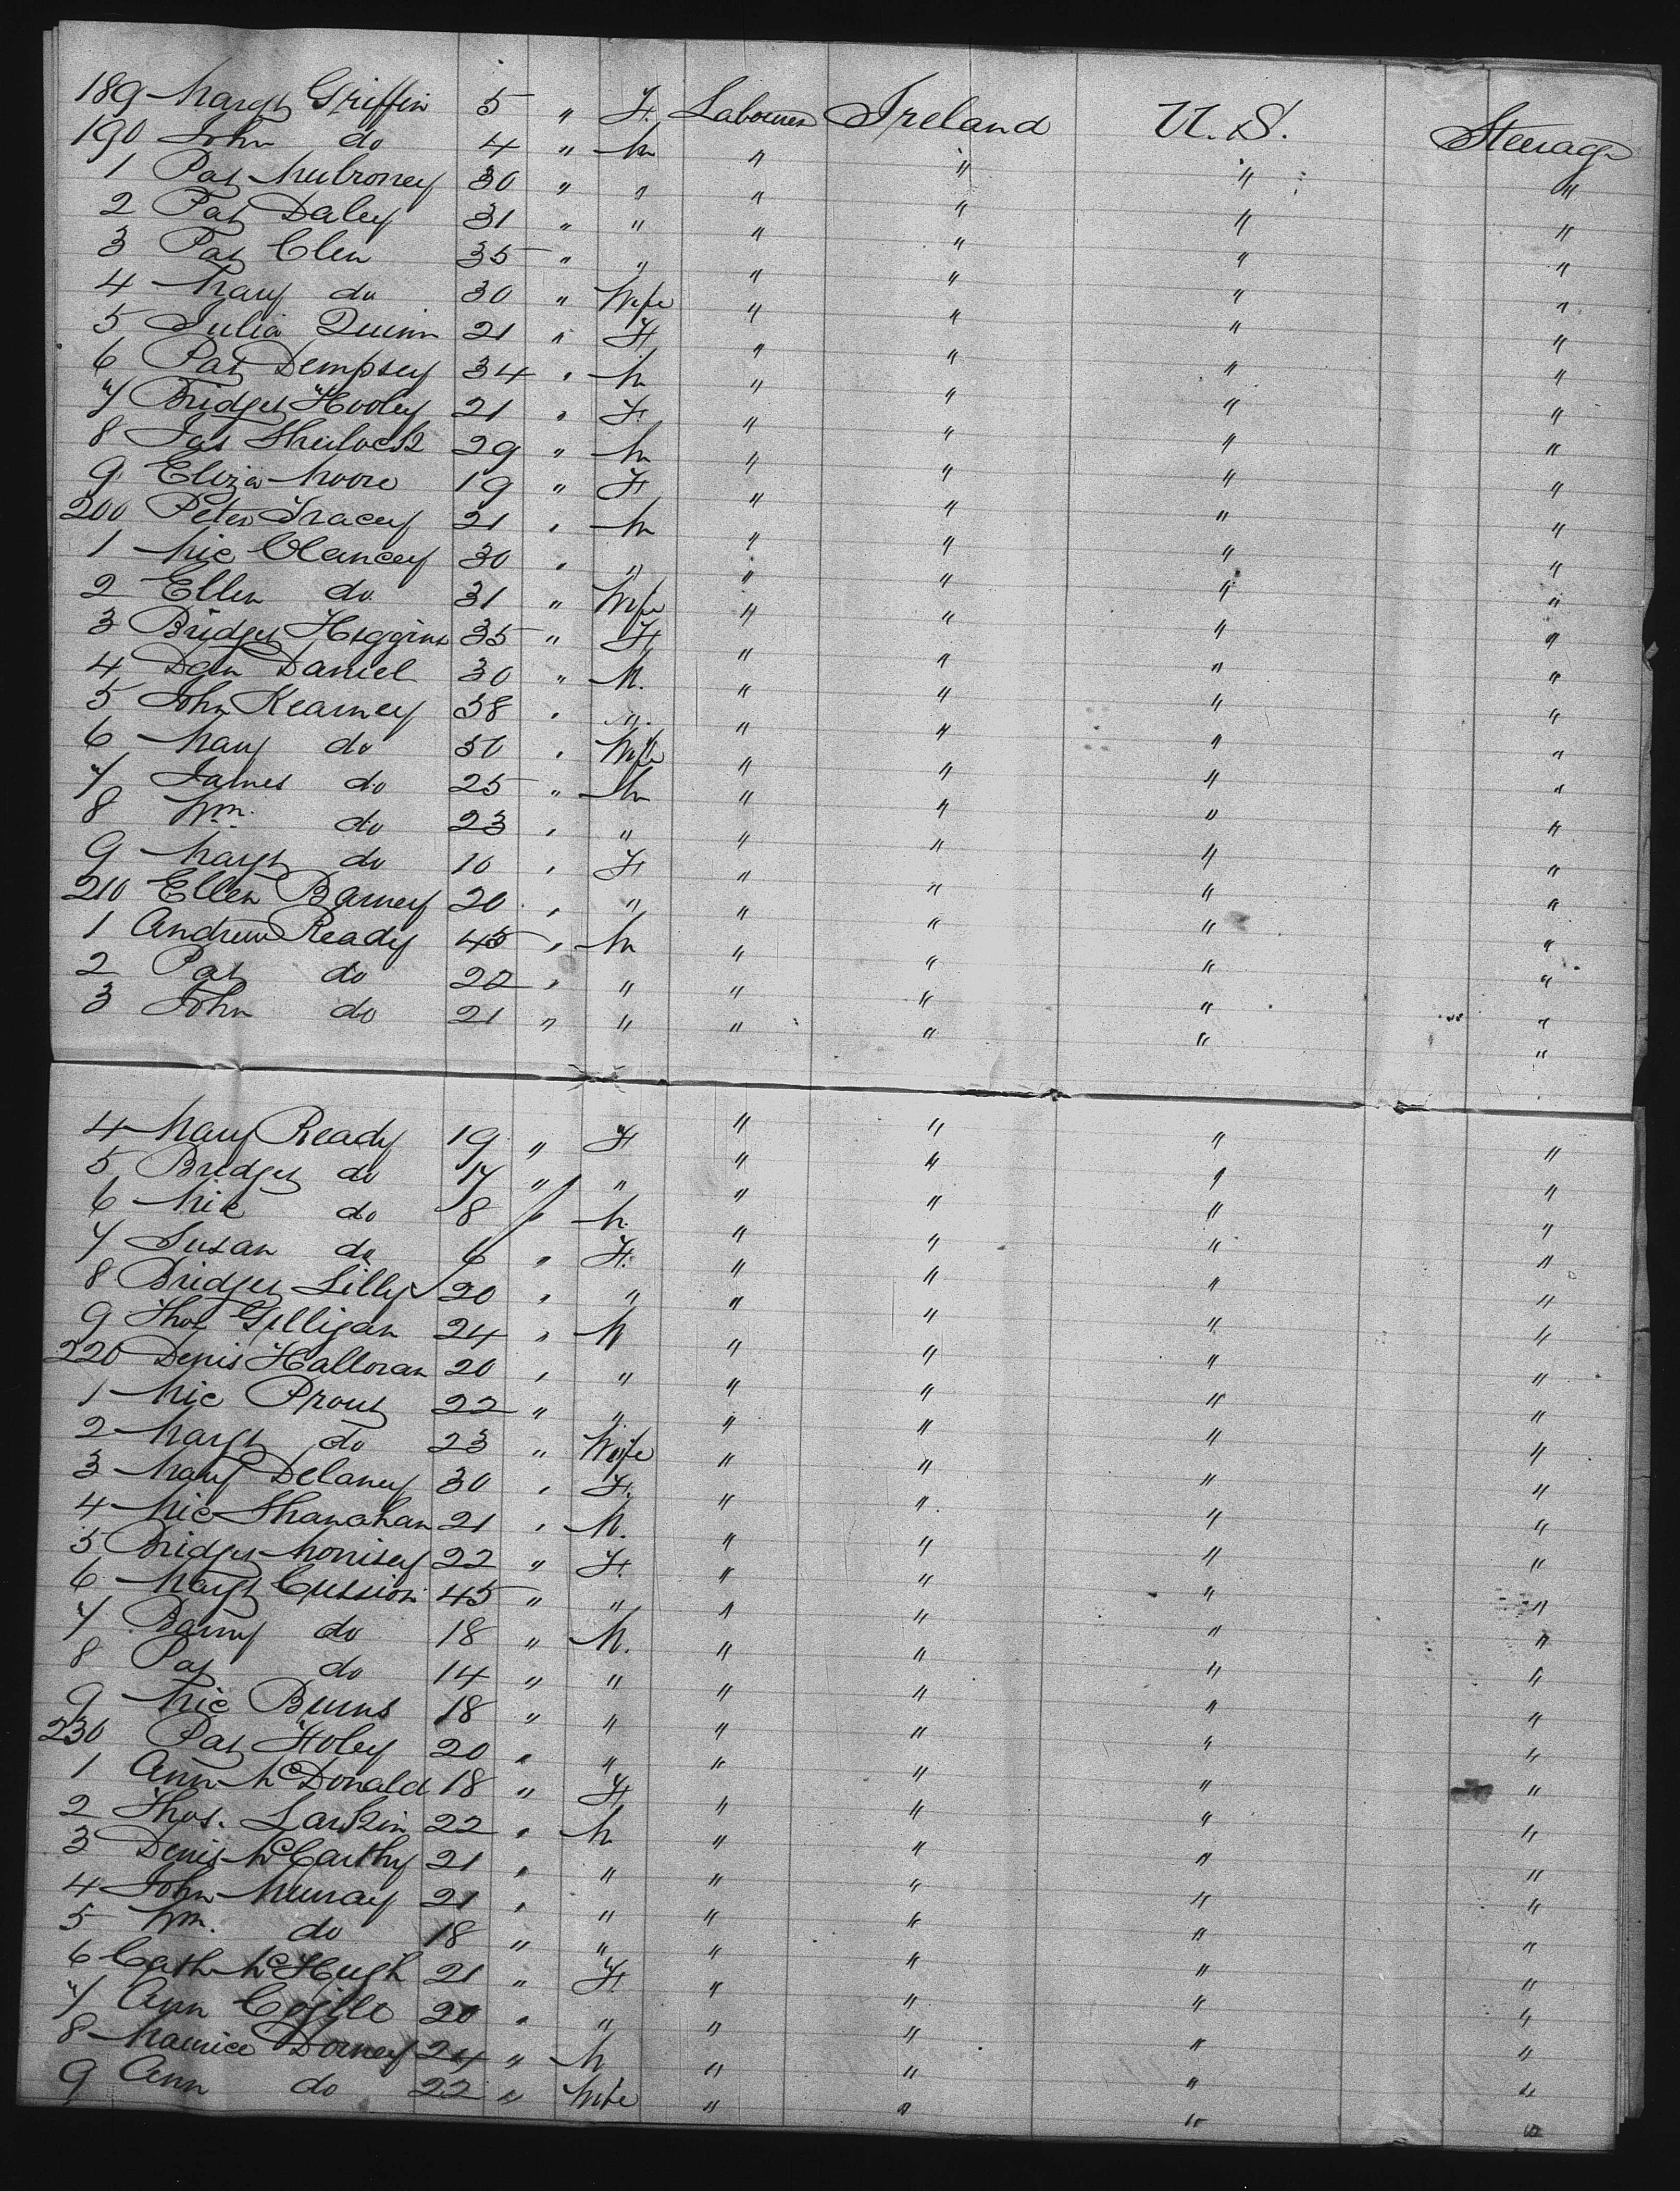 189 Margt Griffin 5 " F. Labourer Ireland U.S. Steerage
190 John do 4 " M " " " "
1 Pat Mulroney 30 " " " " " "
2 Pat Daley 31 " " " " " "
3 Pat Clen 35 " " " " " "
4 Mary do 30 " Wife " " " "
5 Julia Quinn 21 " F " " " "
6 Pat Dempsey 34 " M " " " "
7 Bridget Hooley 21 " F. " " " "
8 Jas Sherlock 29 " M " " " "
9 Eliza Moore 19 " F " " " "
200 Peter Tracey 21 " M " " " "
1 Mic Clancey 30 " " " " " "
2 Ellen do 31 " Wife " " " "
3 Bridget Higgins 35 " F " " " "
4 Dan Daniel 30 " M. " " " "
5 John Kearney 58 " " " " " "
6 Mary do 50 " Wife " " " "
7 James do 25 " M " " " "
8 Wm. do 23 " " " " " "
9 Margt do 10 " F " " " "
210 Ellen Barney 20 " " " " " "
1 Andrew Ready 45 " M " " " "
2 Pat do 22 " " " " " "
3 John do 21 " " " " " "
4 Mary Ready 19 " F " " " "
5 Bridget do 17 " " " " " "
6 Mic do 8 " M. " " " "
7 Susan do 6 " F. " " " "
8 Bridget Lilly 20 " " " " " "
9 Thos Gilligan 24 " M " " " "
220 Denis Halloran 20 " " " " " "
1 Mic Prout 22 " " " " " "
2 Margt do 23 " Wife " " " "
3 Mary Delaney 30 " F. " " " "
4 Mic Shanahan 21 " M. " " " "
5 Bridget Morrisey 22 " F. " " " "
6 Margt Cussion 45 " " " " " "
7 Barny do 18 " M. " " " "
8 Pat do 14 " " " " " "
9 Mic Burns 18 " " " " " "
230 Pat Foley 20 " " " " " "
1 Ann McDonald 18 " F " " " "
2 Thos. Larkin 22 " M " " " "
3 Denis McCarthy 21 " " " " " "
4 John Murray 21 " " " " " "
5 Wm. do 18 " " " " " "
6 Cath McHugh 21 " F " " " "
7 Ann 20 " " " " " "
8 Maurice Dorney 24 " M " " " "
9 Ann do 22 " Wife " " " "